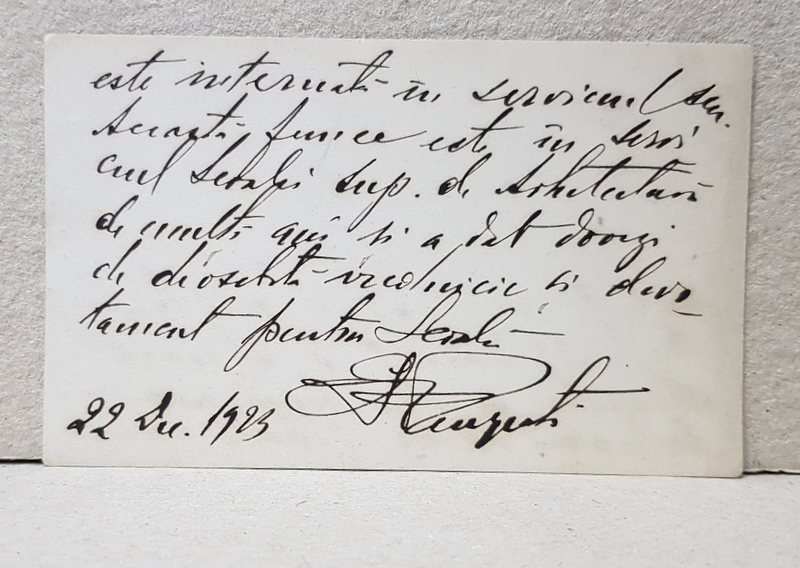 este internată în serviciul său.
Această femee este în servi
ciul Scoalei sup. de Arhitectură
de multi ani si a dat dovezi
de deosebită vrednicie si devo_
tament pentru Scoală
22 Dec. 1923